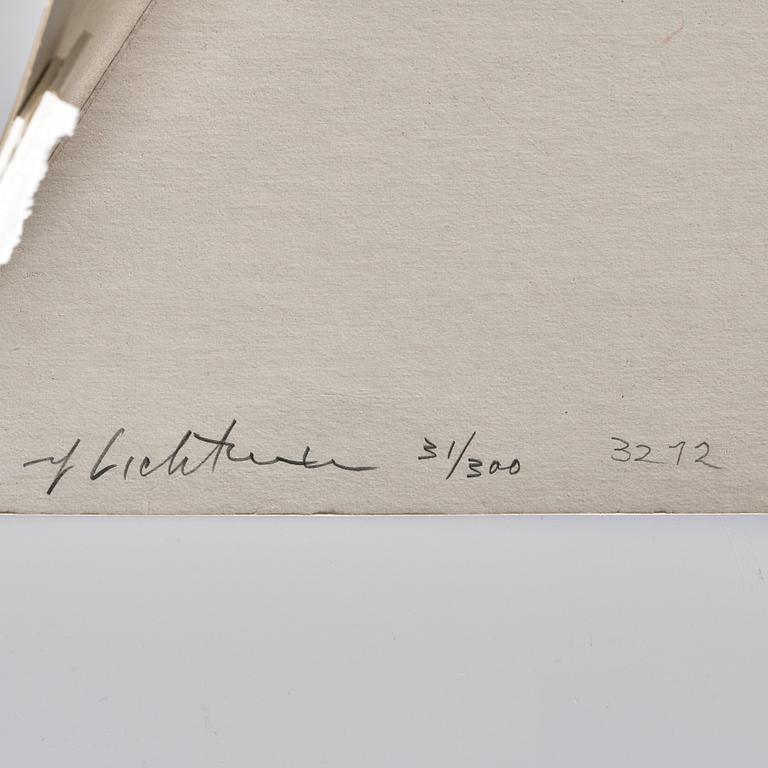 rf Lichtenstein 31/300 3272